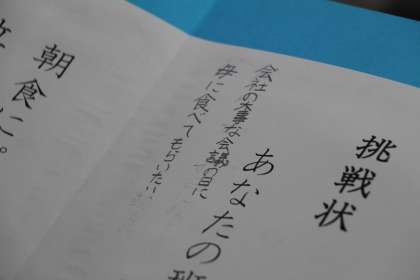 挑戦状
あなたの班
会社の大事な会議の日に
母に食べてもらいたい
朝食に。